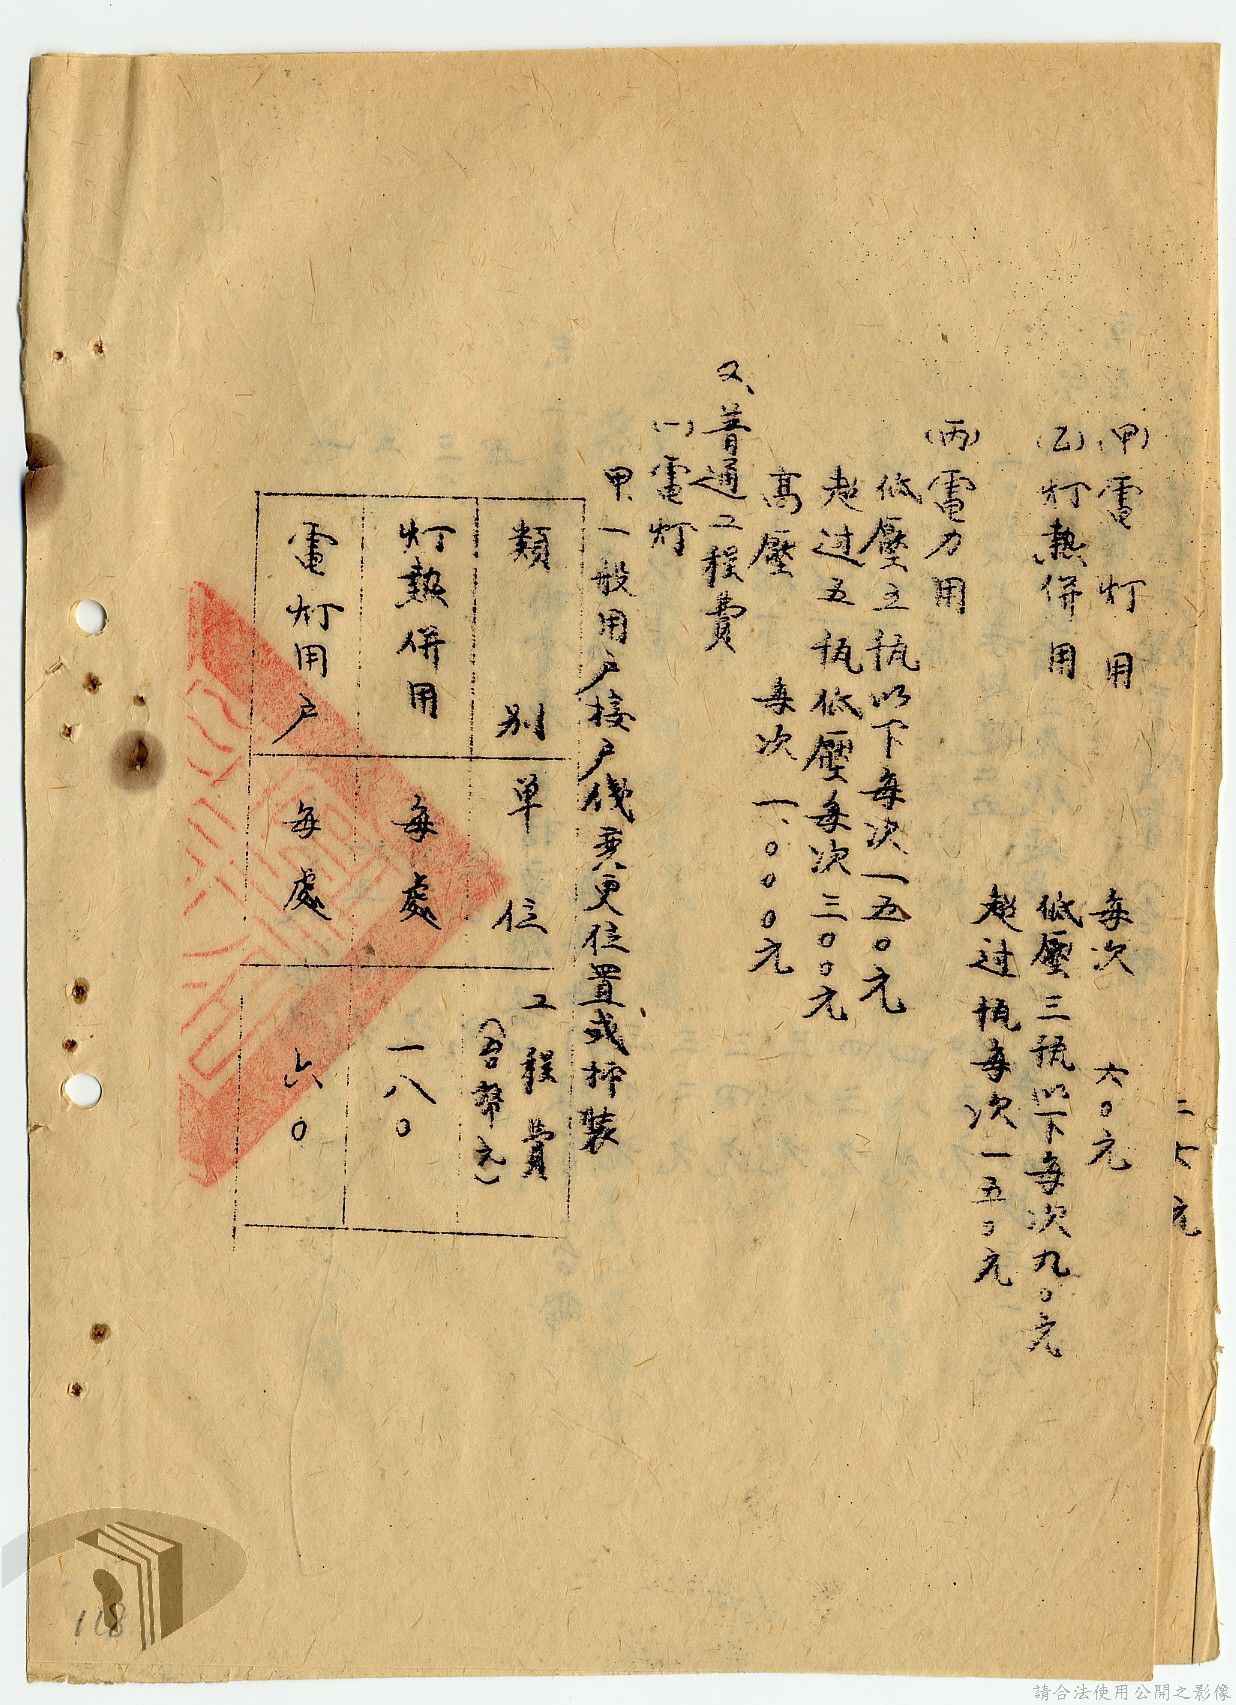 二七元
(甲)電灯用 每次 六〇元
(乙)灯熱併用 低壓三瓩以下每次九〇元
超过 瓩每次一五〇元
(丙)電力用
低壓五瓩以下每次一五〇元
超过五瓩低壓每次三〇〇元
高壓 每次 一、〇〇〇元
又、普通工程費
(一)電灯
甲、一般用户接户线变更位置或拆装
類別 単位 工程費
(台幣元)
灯熱併用 每處 一八〇
電灯用户 每處 六〇
118
請合法使用公開之影像